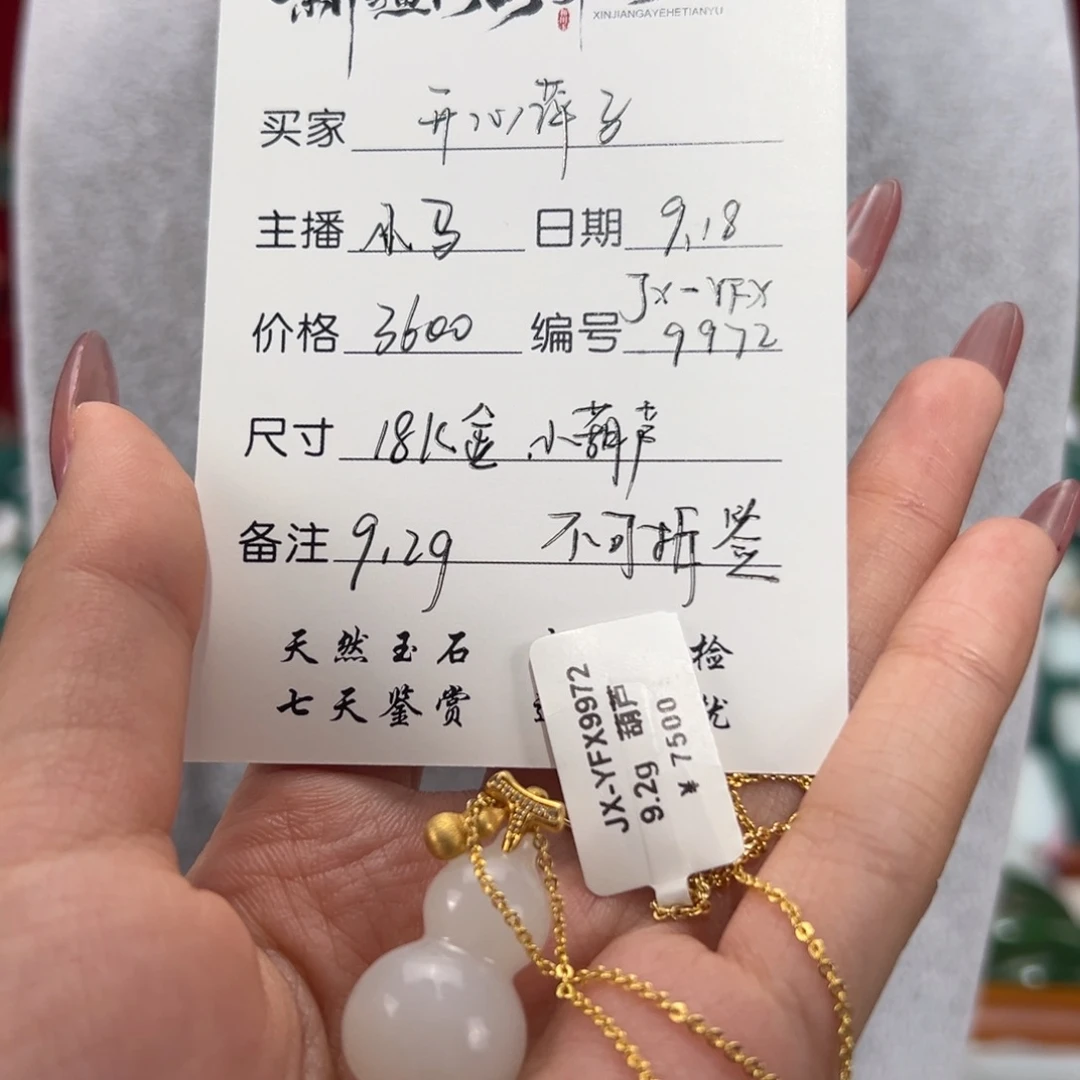 XINJIANGAYEHETIANYU
买家 开心萍子
主播 小马 日期 9.18
价格 3600 编号 JX-YFX 9972
尺寸 18K金 小葫芦
备注 9.2g 不可拆签
天然玉石 检
七天鉴赏 优
JX-YFX9972
9.2g 葫芦
¥ 7500